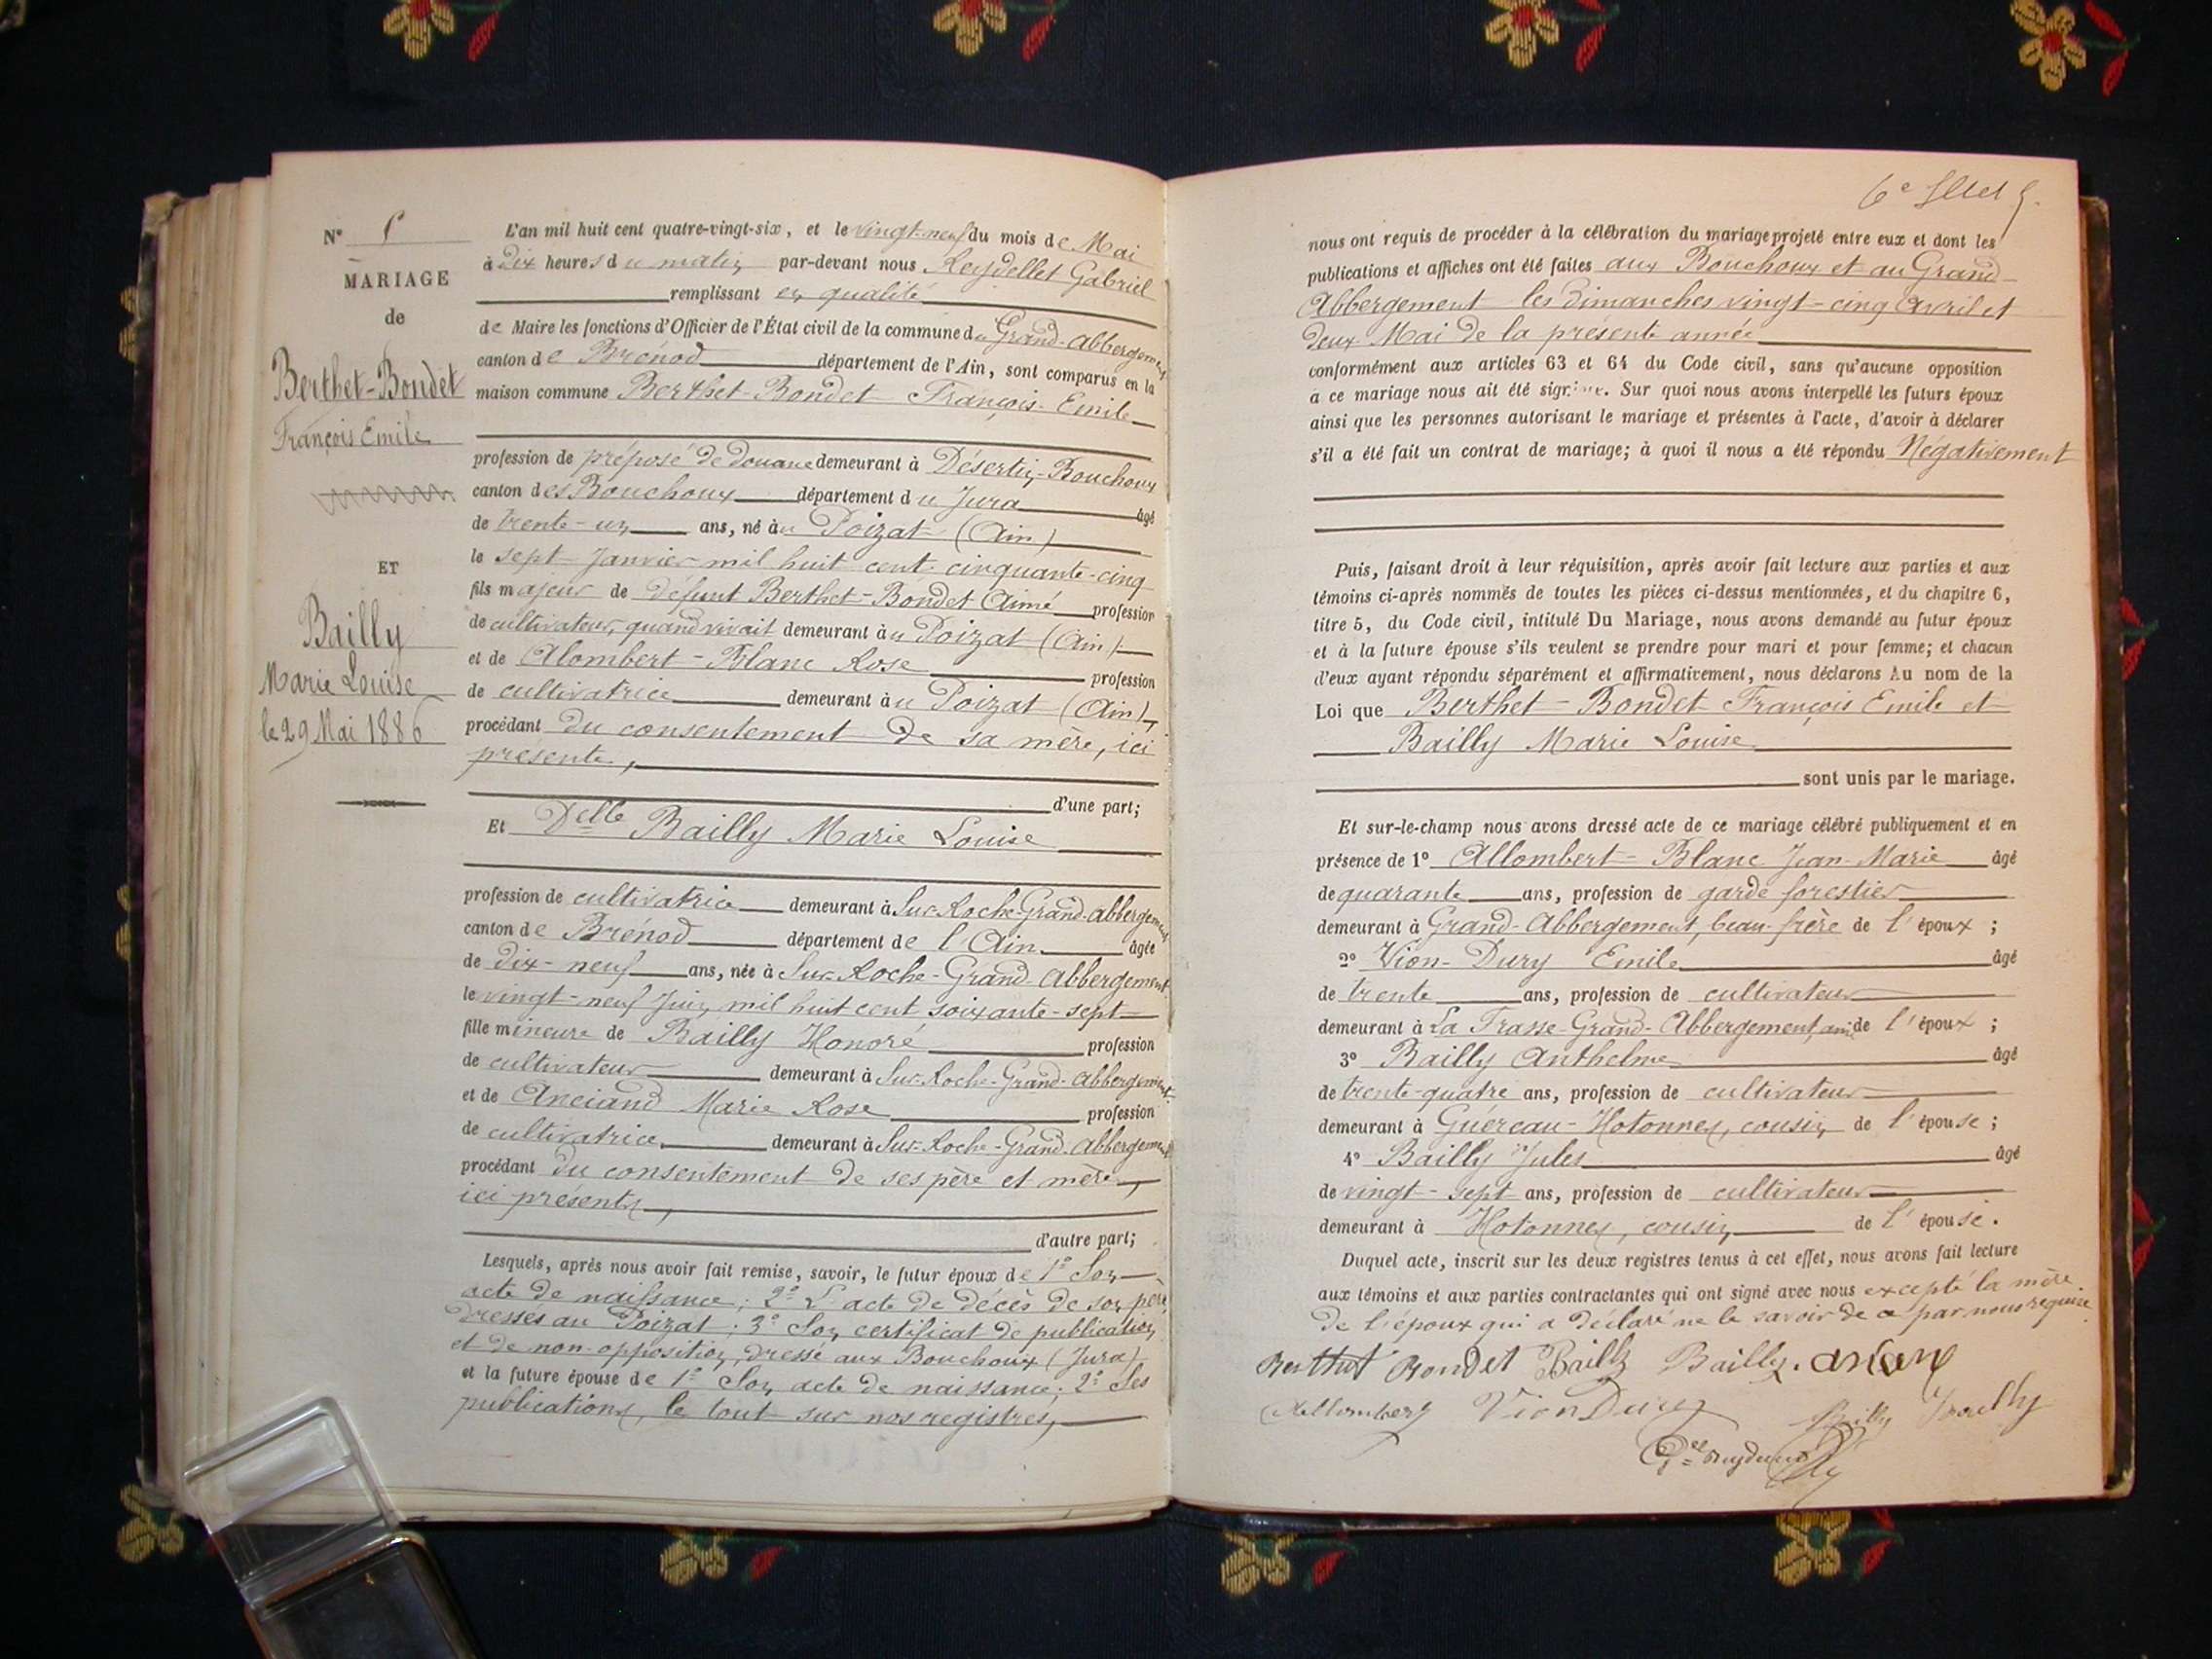 N°
MARIAGE
de
Berthet-Bondet
François Emile
ET
Bailly
Marie Louise
le 29 Mai 1886
L'an mil huit cent quatre-vingt-six, et le vingt-neuf du mois de Mai
à dix heures du matin par-devant nous Reydellet Gabriel
remplissant en qualité
de Maire les fonctions d'Officier de l'État civil de la commune du Grand-Abbergement
canton de Brénod département de l'Ain, sont comparus en la
maison commune Berthet-Bondet François-Emile
profession de préposé de douane demeurant à Désertin-Bouchoux
canton des Bouchoux département du Jura âgé
de trente-un ans, né au Poizat (Ain)
le sept Janvier mil huit cent cinquante-cinq
fils majeur de défunt Berthet-Bondet Aimé profession
de cultivateur, quand vivait demeurant au Poizat (Ain)
et de Alombert-Blanc Rose profession
de cultivatrice demeurant au Poizat (Ain),
procédant du consentement de sa mère, ici
présente,
d'une part;
Et Delle Bailly Marie Louise
profession de cultivatrice demeurant à Sur-Roche-Grand-Abbergement
canton de Brénod département de l'Ain âgée
de dix-neuf ans, née à Sur-Roche-Grand-Abbergement
le vingt-neuf Juin mil huit cent soixante-sept
fille mineure de Bailly Honoré profession
de cultivateur demeurant à Sur-Roche-Grand-Abbergement
et de Anciand Marie Rose profession
de cultivatrice demeurant à Sur-Roche-Grand-Abbergement
procédant du consentement de ses père et mère,
ici présents,
d'autre part;
Lesquels, après nous avoir fait remise, savoir, le futur époux de 1° Son
acte de naissance; 2° L'acte de décès de son père,
dressés au Poizat; 3° Son certificat de publication
et de non-opposition, dressé aux Bouchoux (Jura)
et la future épouse de 1° Son acte de naissance; 2° Ses
publications, le tout sur nos registres,
6e
nous ont requis de procéder à la célébration du mariage projeté entre eux et dont les
publications et affiches ont été faites aux Bouchoux et au Grand
Abbergement les dimanches vingt-cinq Avril et
deux Mai de la présente année
conformément aux articles 63 et 64 du Code civil, sans qu'aucune opposition
à ce mariage nous ait été signifiée. Sur quoi nous avons interpellé les futurs époux
ainsi que les personnes autorisant le mariage et présentes à l'acte, d'avoir à déclarer
s'il a été fait un contrat de mariage; à quoi il nous a été répondu Négativement
Puis, faisant droit à leur réquisition, après avoir fait lecture aux parties et aux
témoins ci-après nommés de toutes les pièces ci-dessus mentionnées, et du chapitre 6,
titre 5, du Code civil, intitulé Du Mariage, nous avons demandé au futur époux
et à la future épouse s'ils veulent se prendre pour mari et pour femme; et chacun
d'eux ayant répondu séparément et affirmativement, nous déclarons Au nom de la
Loi que Berthet-Bondet François Emile et
Bailly Marie Louise
sont unis par le mariage.
Et sur-le-champ nous avons dressé acte de ce mariage célébré publiquement et en
présence de 1° Allombert-Blanc Jean-Marie âgé
de quarante ans, profession de garde forestier
demeurant à Grand-Abbergement, beau-frère de l'époux;
2° Vion-Dury Emile âgé
de trente ans, profession de cultivateur
demeurant à La Frasse-Grand-Abbergement, ami de l'époux;
3° Bailly Anthelme âgé
de trente-quatre ans, profession de cultivateur
demeurant à Guéreau-Hotonnes, cousin de l'épouse;
4° Bailly Jules âgé
de vingt-sept ans, profession de cultivateur
demeurant à Hotonnes, cousin de l'épouse.
Duquel acte, inscrit sur les deux registres tenus à cet effet, nous avons fait lecture
aux témoins et aux parties contractantes qui ont signé avec nous excepté la mère
de l'époux qui a déclaré ne le savoir de ce par nous requise.
Berthet Bondet Bailly Bailly
Allombert Vion Dury Bailly